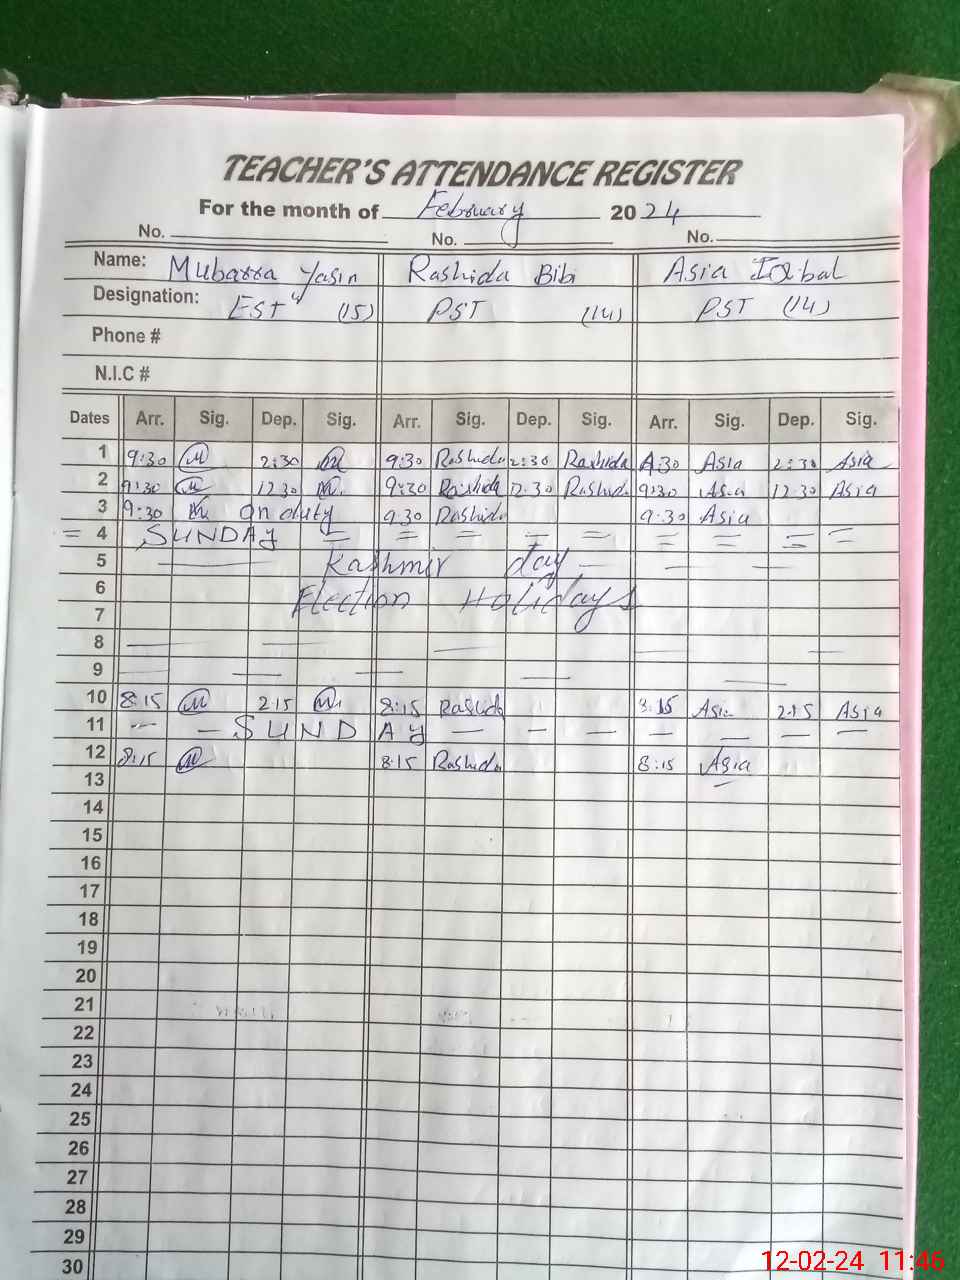 TEACHER'S ATTENDANCE REGISTER
For the month of February 2024
No. No. No.
Name: Mubarra Yasin Rashida Bibi Asia Iqbal
Designation: EST (15) PST (14) PST (14)
Phone #
N.I.C #
Dates Arr. Sig. Dep. Sig. Arr. Sig. Dep. Sig. Arr. Sig. Dep. Sig.
1 9:30 M 2:30 M 9:30 Rashida 2:30 Rashida 9:30 Asia 2:30 Asia
2 9:30 M 12.30 M. 9:30 Rashida 12.30 Rashida 9:30 Asia 12.30 Asia
3 9:30 M. On duty 9.30 Rashida 9.30 Asia
= 4 SUNDAY = = = = = = = = =
5 Kashmir day
6 Election Holidays
7
8
9
10 8:15 M 2.15 M. 8:15 Rashida 8.15 Asia 2.15 Asia
11 - - SUNDAY - - - - - - -
12 8:15 M 8.15 Rashida 8:15 Asia
13
14
15
16
17
18
19
20
21
22
23
24
25
26
27
28
29
30
12-02-24 11:46